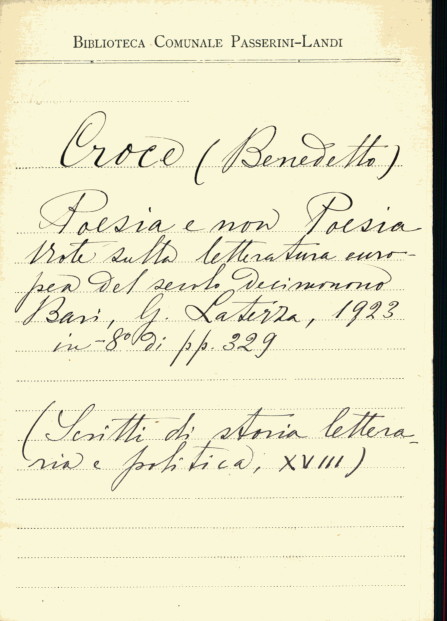 BIBLIOTECA COMUNALE PASSERINI-LANDI
Croce (Benedetto)
Poesia e non Poesia
Note sulla letteratura euro-
pea del secolo decimonono
Bari, G. Laterza, 1923
in-8º di pp. 329
(Scritti di storia lettera-
ria e politica, XVIII)